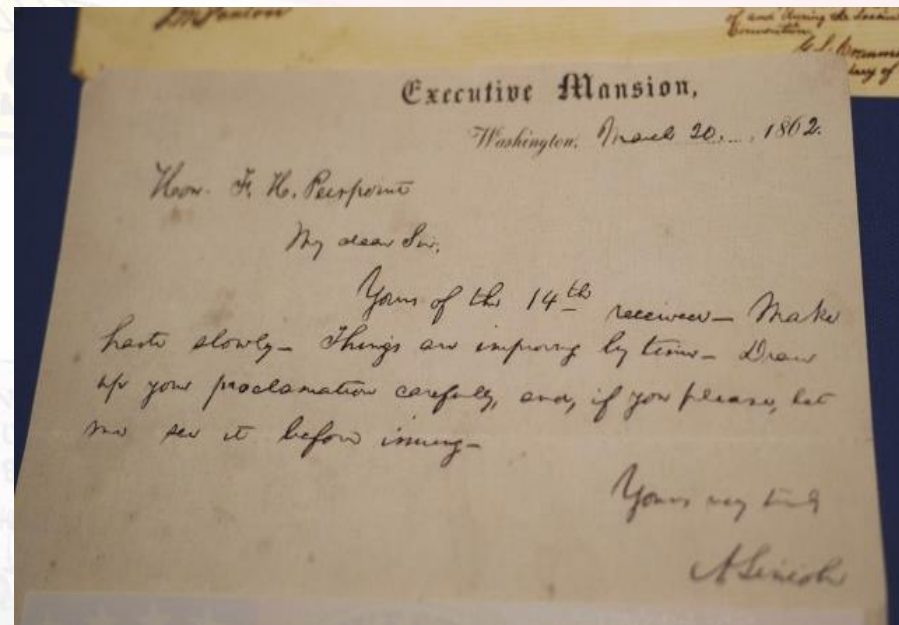 of and during the
Convention
Executive Mansion,
Washington, March 20, 1862.
Hon. F. H. Peirpoint
My dear Sir,
Yours of the 14th received— Make
haste slowly— Things are improving by time— Draw
up your proclamation carefully, and, if you please, let
me see it before issuing—
Yours very truly
A Lincoln